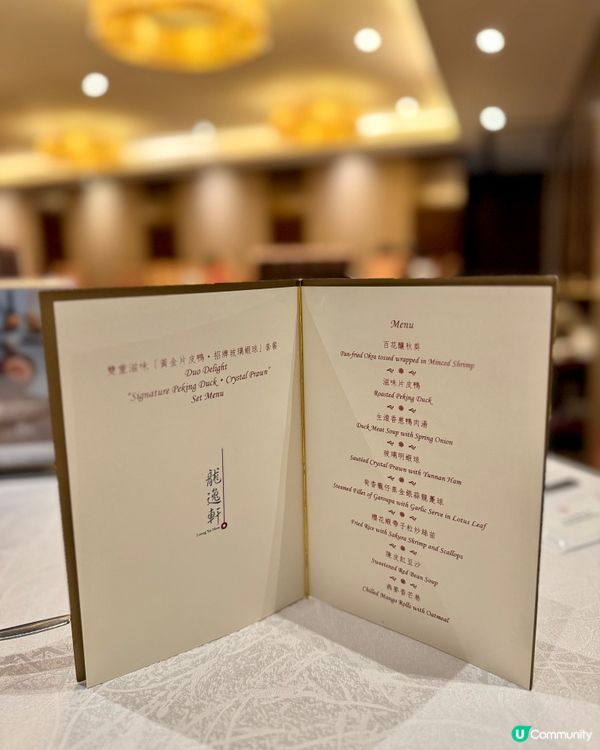 雙重滋味「黃金片皮鴨•招牌玻璃蝦球」套餐
Duo Delight
"Signature Peking Duck • Crystal Prawn"
Set Menu
龍逸軒
Menu
百花釀秋葵
Pan-fried Okra tossed wrapped in Minced Shrimp
滋味片皮鴨
Roasted Peking Duck
生滾香蔥鴨肉湯
Duck Meat Soup with Spring Onion
玻璃明蝦球
Sautéed Crystal Prawn with Yunnan Ham
荷香籠仔蒸金銀蒜龍躉球
Steamed Fillet of Garoupa with Garlic Serve in Lotus Leaf
櫻花蝦帶子粒炒絲苗
Fried Rice with Sakura Shrimp and Scallops
陳皮紅豆沙
Sweetened Red Bean Soup
燕麥香芒卷
Chilled Mango Rolls with Oatmeal
U Community